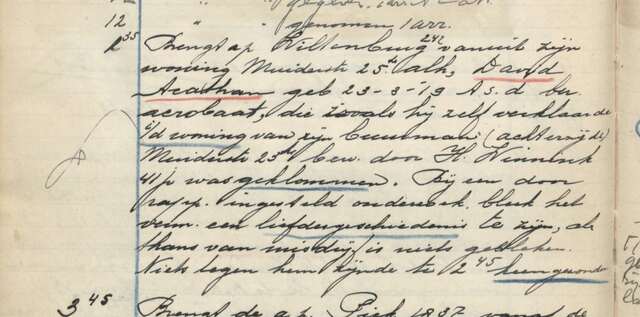 12 " " genomen 1 arr.
1 35 Brengt ap. Wiltenburg 242 vanuit zijn
woning Muiderstr 25 alh, David
Acathan geb 23-3-'13 A.s.d. ber.
acrobaat, die zooals hij zelf verklaarde
i/d woning van zijn buurman (achterzijde)
Muiderstr 25 bew. door H.
41 jr was geklommen. Bij een door
ingesteld onderzoek bleek het
een liefdesgeschiedenis te zijn, al
thans van misdrijf is niets gebleken.
Niets tegen hem zijnde te 2 45 heengezonden
3 45 Brengt de a.p. Piek 1837 vanaf de